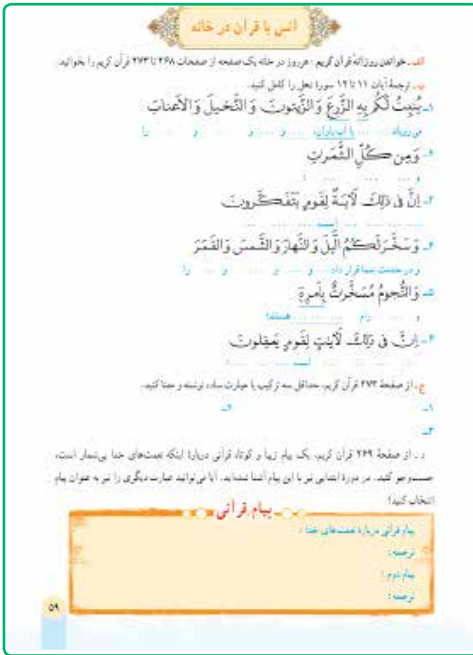 انس با قرآن در خانه
الف ـ خواندن روزانهٔ قرآن کریم : هر روز در خانه یک صفحه از صفحات ۲۶۸ تا ۲۷۳ قرآن کریم را بخوانید.
ب ـ ترجمهٔ آیات ۱۱ تا ۱۲ سورهٔ نحل را کامل کنید.
۱ـ يُنبِتُ لَكُم بِهِ الزَّرعَ وَ الزَّيتونَ وَ النَّخيلَ وَ الأَعنابَ
می‌رویاند ...... با آب باران، ...... و ...... و ...... و ...... را
۲ـ وَ مِن كُلِّ الثَّمَراتِ
و ......
۳ـ اِنَّ في ذٰلِكَ لَآيَةً لِقَومٍ يَتَفَكَّرونَ
...... است
۴ـ وَ سَخَّرَ لَكُمُ الَّيلَ وَ النَّهارَ وَ الشَّمسَ وَ القَمَرَ
و در خدمت شما قرار داد ...... و ...... و ...... و ...... را
۵ـ وَ النُّجومُ مُسَخَّراتٌ بِاَمرِهِ
و ...... رام ...... هستند؛
۶ـ اِنَّ في ذٰلِكَ لَآياتٍ لِقَومٍ يَعقِلونَ
...... است
ج ـ از صفحهٔ ۲۷۳ قرآن کریم، حداقل سه ترکیب یا عبارت ساده نوشته و معنا کنید.
۱ـ ۲ـ
۳ـ
د ـ از صفحهٔ ۲۶۹ قرآن کریم، یک پیام زیبا و کوتاه قرآنی دربارهٔ اینکه نعمت‌های خدا بی‌شمار است،
جست‌وجو کنید. در دورهٔ ابتدایی نیز با این پیام آشنا شده‌اید. آیا می‌توانید عبارت دیگری را نیز به عنوان پیام
انتخاب کنید؟
پیام قرآنی
پیام قرآنی دربارهٔ نعمت‌های خدا :
ترجمه :
پیام دوم :
ترجمه :
۵۹